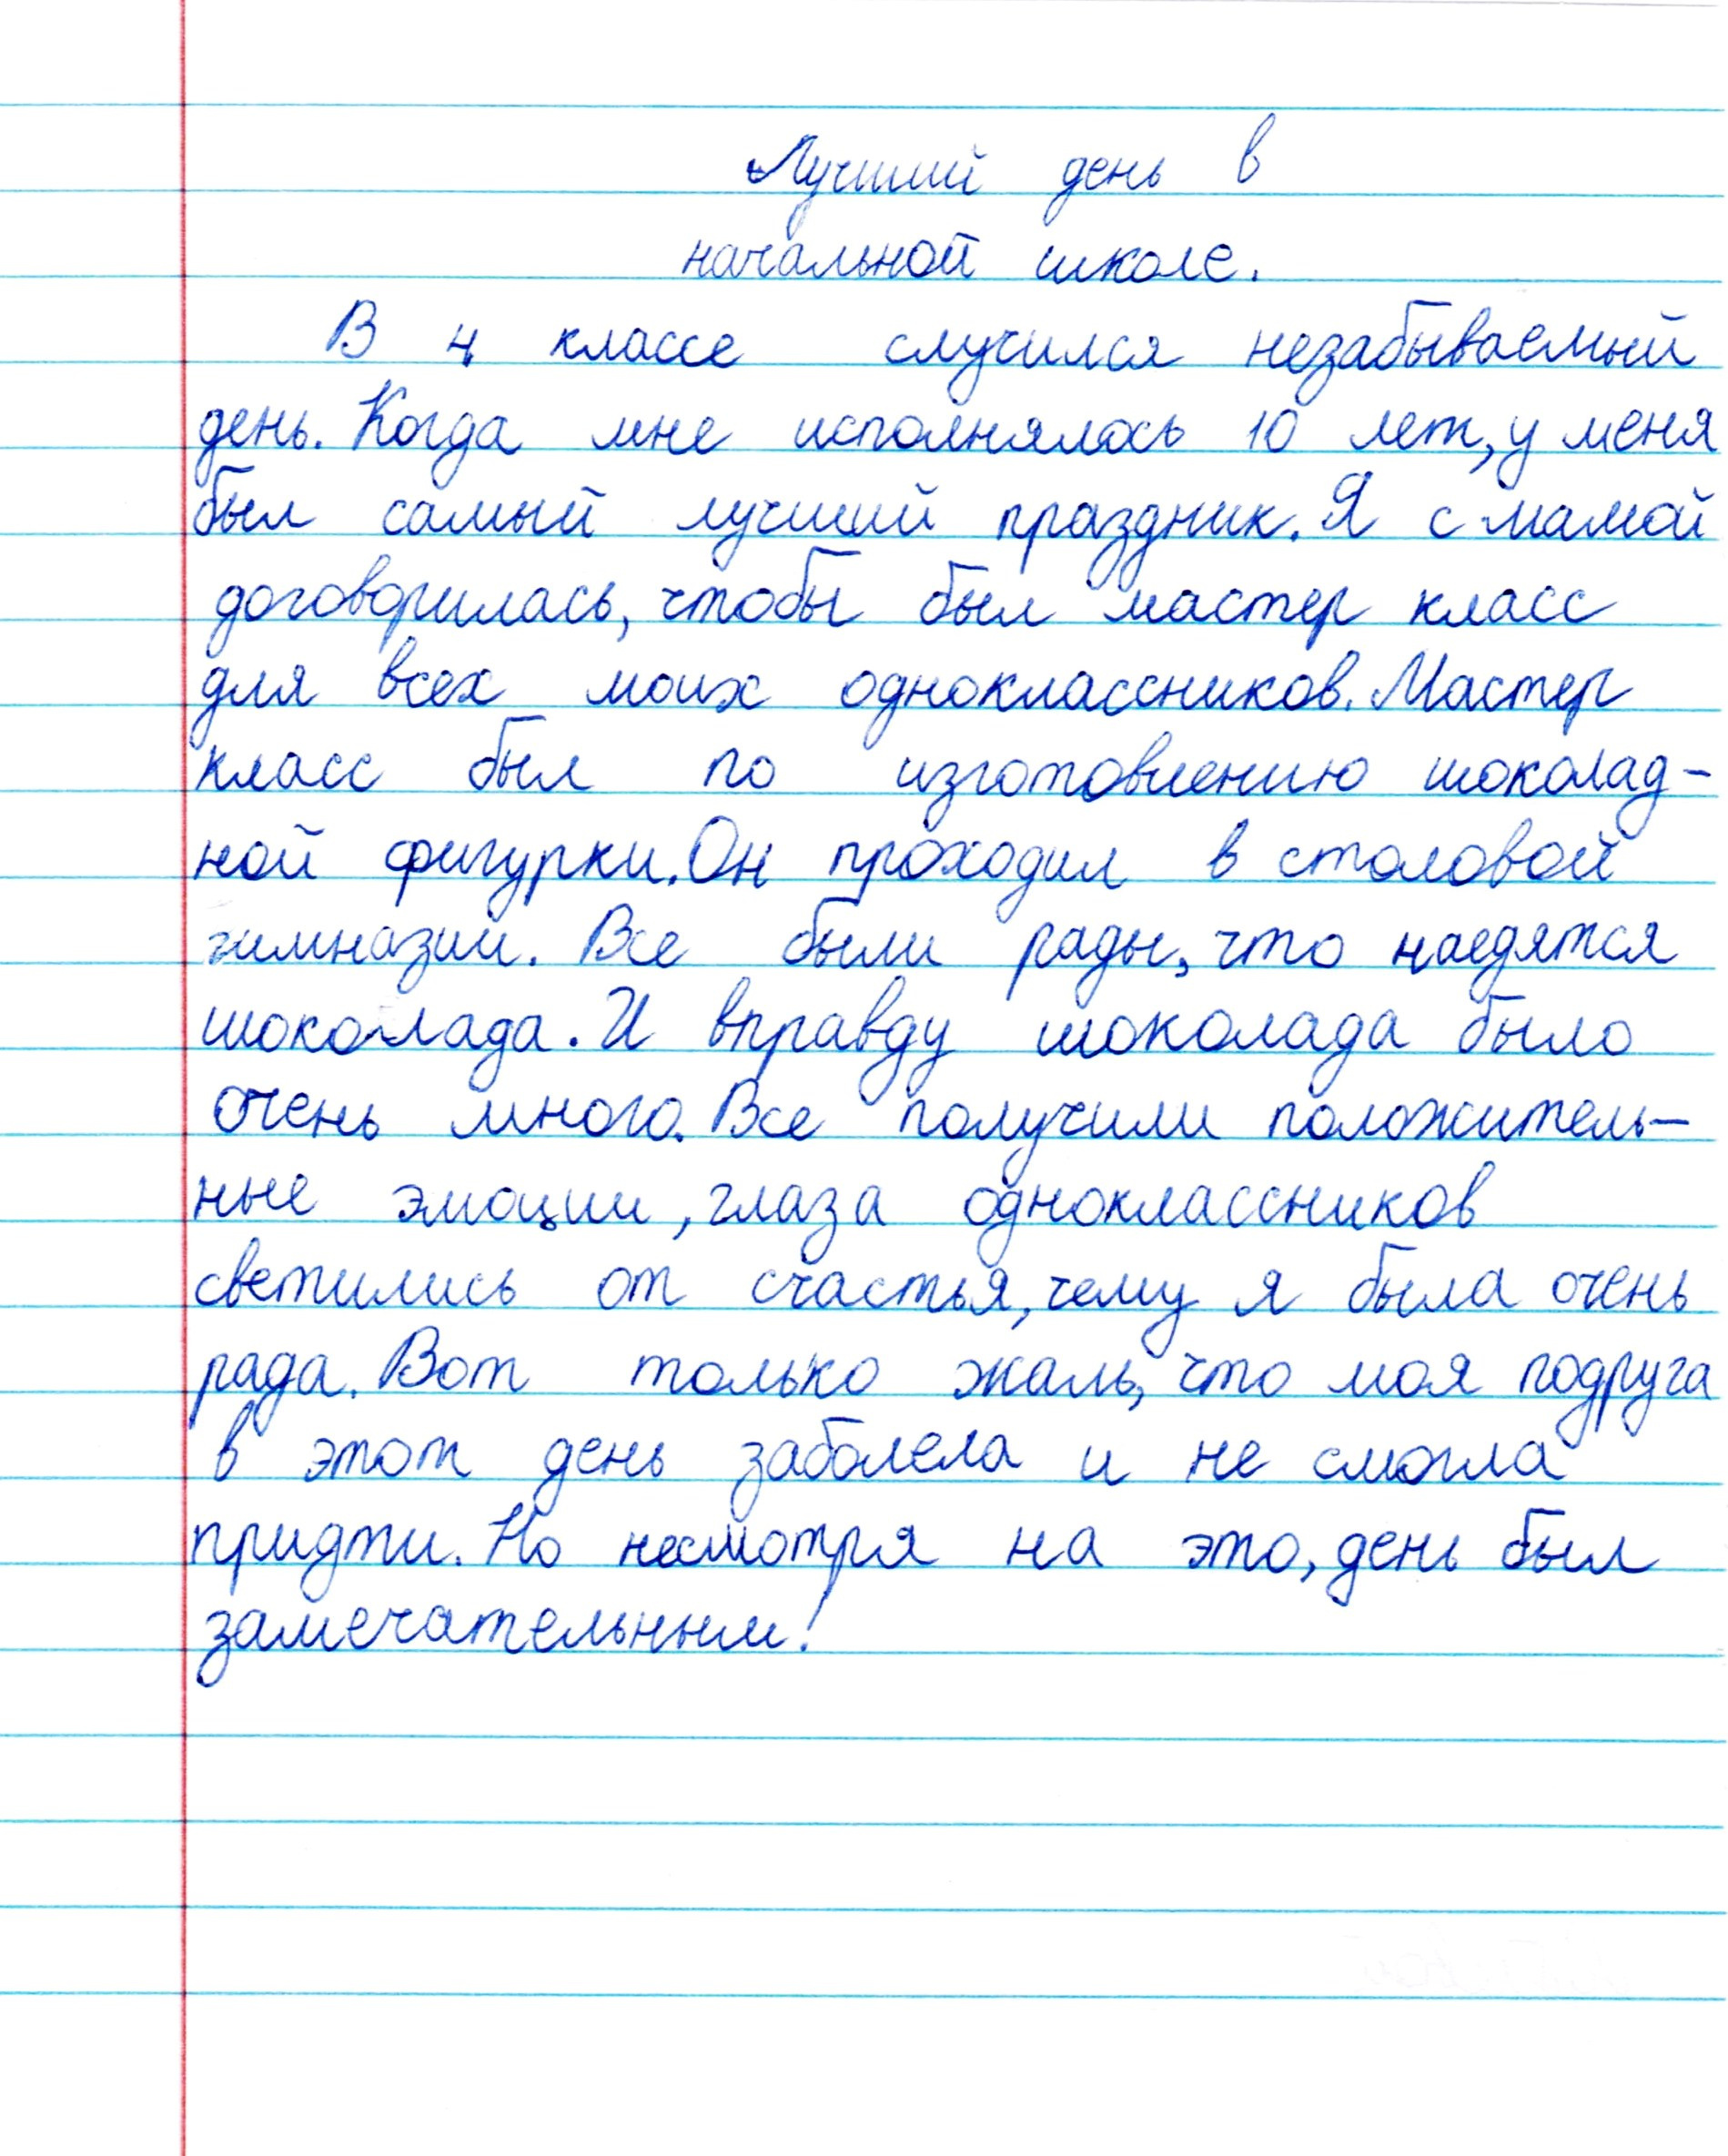 Лучший день в
начальной школе.
В 4 классе случился незабываемый
день. Когда мне исполнялось 10 лет, у меня
был самый лучший праздник. Я с мамой
договорилась, чтобы был мастер класс
для всех моих одноклассников. Мастер
класс был по изготовлению шоколад-
ной фигурки. Он проходил в столовой
гимназии. Все были рады, что наедятся
шоколада. И вправду шоколада было
очень много. Все получили положитель-
ные эмоции, глаза одноклассников
светились от счастья, чему я была очень
рада. Вот только жаль, что моя подруга
в этот день заболела и не смогла
придти. Но несмотря на это, день был
замечательным!